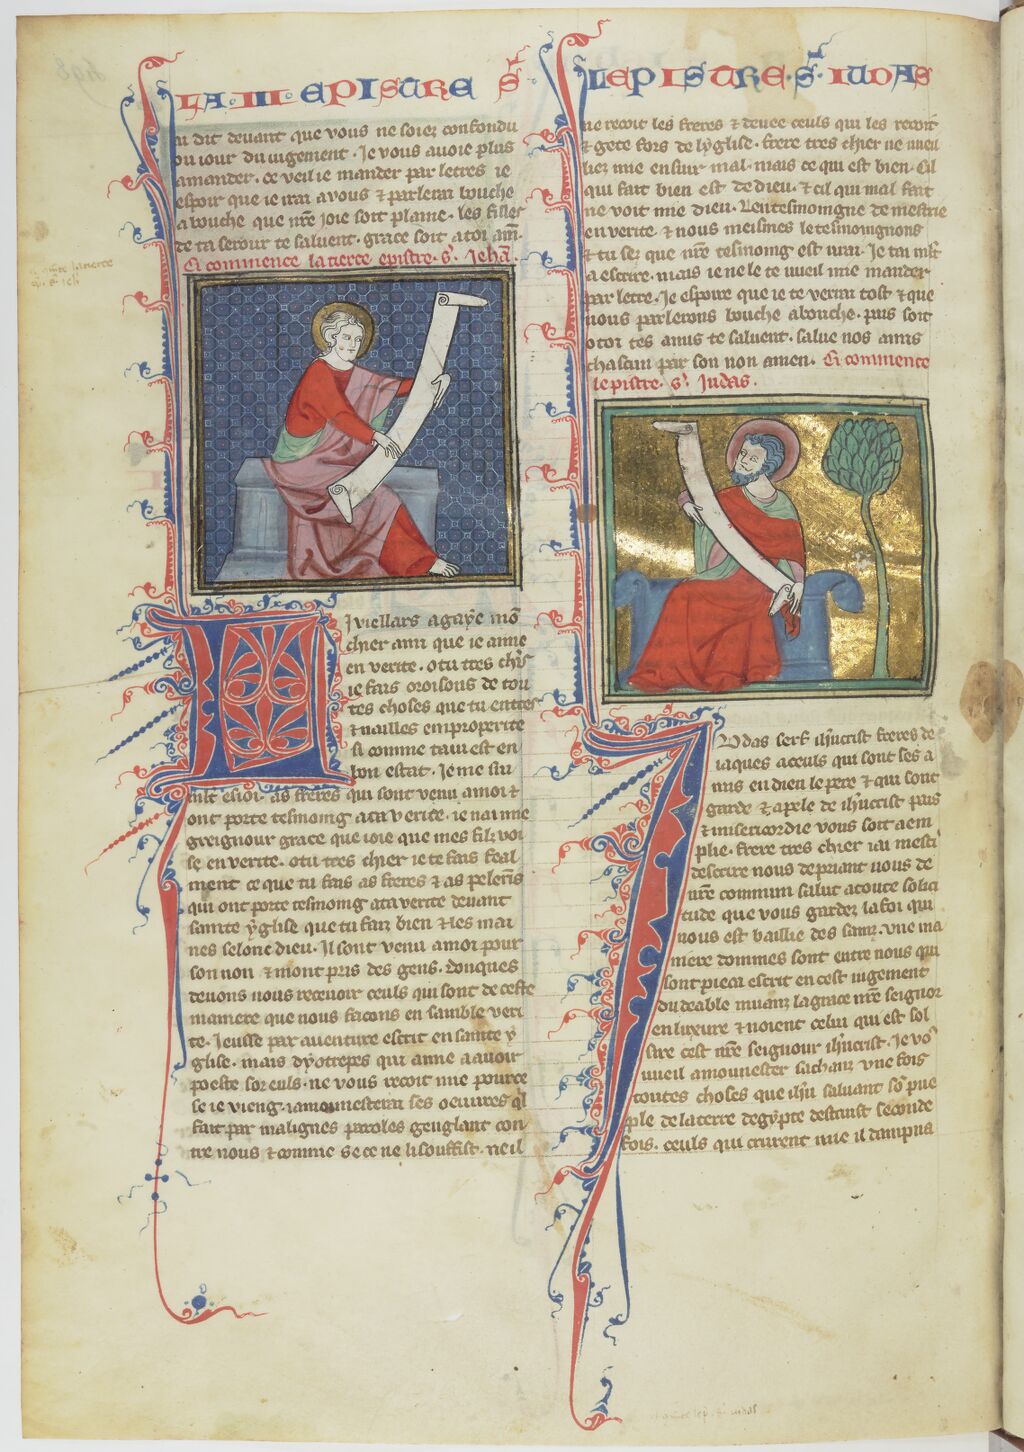 LA · III · EPISTRE S͛
LEPISTRE · S͛ · IUDAS
ai dit deuant que vous ne soiez confondu
ou iour du iugement · Je vous auoie plus
amander · ce veil ie mander par letres ie
espoir que ie irai a vous & parlerai bouche
a bouche que nr̄e ioie soit plaine · les filles
de ta serour te saluent · grace soit a toi am̄.
Ci commence la tierce epistre · s͛ · Jehā.
L Iviellars a gaye mō
chier ami que ie aime
en verite · o tu tres chi͛r
ie fais oroisons de tou
tes choses que tu entres
& uailles em properite
si comme ta ui est en
bon estat · Je me siu
mlt esioi · as freres qui sont venu a moi &
ont porte tesmoing a ta verite · ie nai nne
greignour grace que ioie que mes filz voi
se en verite · o tu tres chier ie te fais feal
ment ce que tu fais as freres & as pelerīs
qui ont porte tesmoing a ta verite deuant
sainte yglise que tu faiz bien & les mai
nes selonc dieu · Il sont venu a moi pour
son non & mont pris des gens · donques
deuons nous receuoir ceuls qui sont de ceste
maniere que nous facons en samble veri
te · Jeusse par auenture escrit en sainte y
glise · mais dyotrepes qui aime a auoir
poeste sor euls · ne vous recoit mie pource
se ie vieng · iamounesterai ses oeuures q̄l
fait par malignes paroles geuglant con
tre nous & comme se ce ne li souffist · ne il
ne recoit les freres & deuee ceuls qui les recoit
& gete fors de lyglise · frere tres chier ne uueil
liez mie ensiur mal · mais ce qui est bien · Cil
qui fait bien est de dieu · & cil qui mal fait
ne voit mie dieu · Len tesmoingne de mestrie
en verite & nous meismes le tesmoignons
& tu sez que nr̄e tesmoing est urai · Je tai mlt
a escrire · mais ie ne le te uueil mie mander
par letre · Je espoire que ie te verrai tost & que
nous parlerons bouche a bouche · pais soit
o toi tes amis te saluent · salue nos amis
chascun par son non amen · Ci commence
lepistre · s͛ · Judas ·
J Vdas serf ih̄ucrist freres de
iaques a ceuls qui sont ses a
mis en dieu le pere & qui sont
garde & apele de ih̄ucrist pais
& misericordie vous soit aem
plie · frere tres chier iai mesti
descrire nous depriant uous de
nr̄e commun salut a toute solici
tude que vous gardez la foi qui
nous est baillie des sainz · vne ma
niere dommes sont entre nous qui
sont pieca escrit en cest iugement
du deable muanz la grace nr̄e seignor
en luxure & noient celui qui est sol
sire cest nr̄e seignour ih̄ucrist · Je vo͛
uueil amounester sachanz vne fois
toutes choses que ih̄u saluant sō pue
ple de la terre degypte destruist seconde
fois · ceuls qui crurent mie il dampna